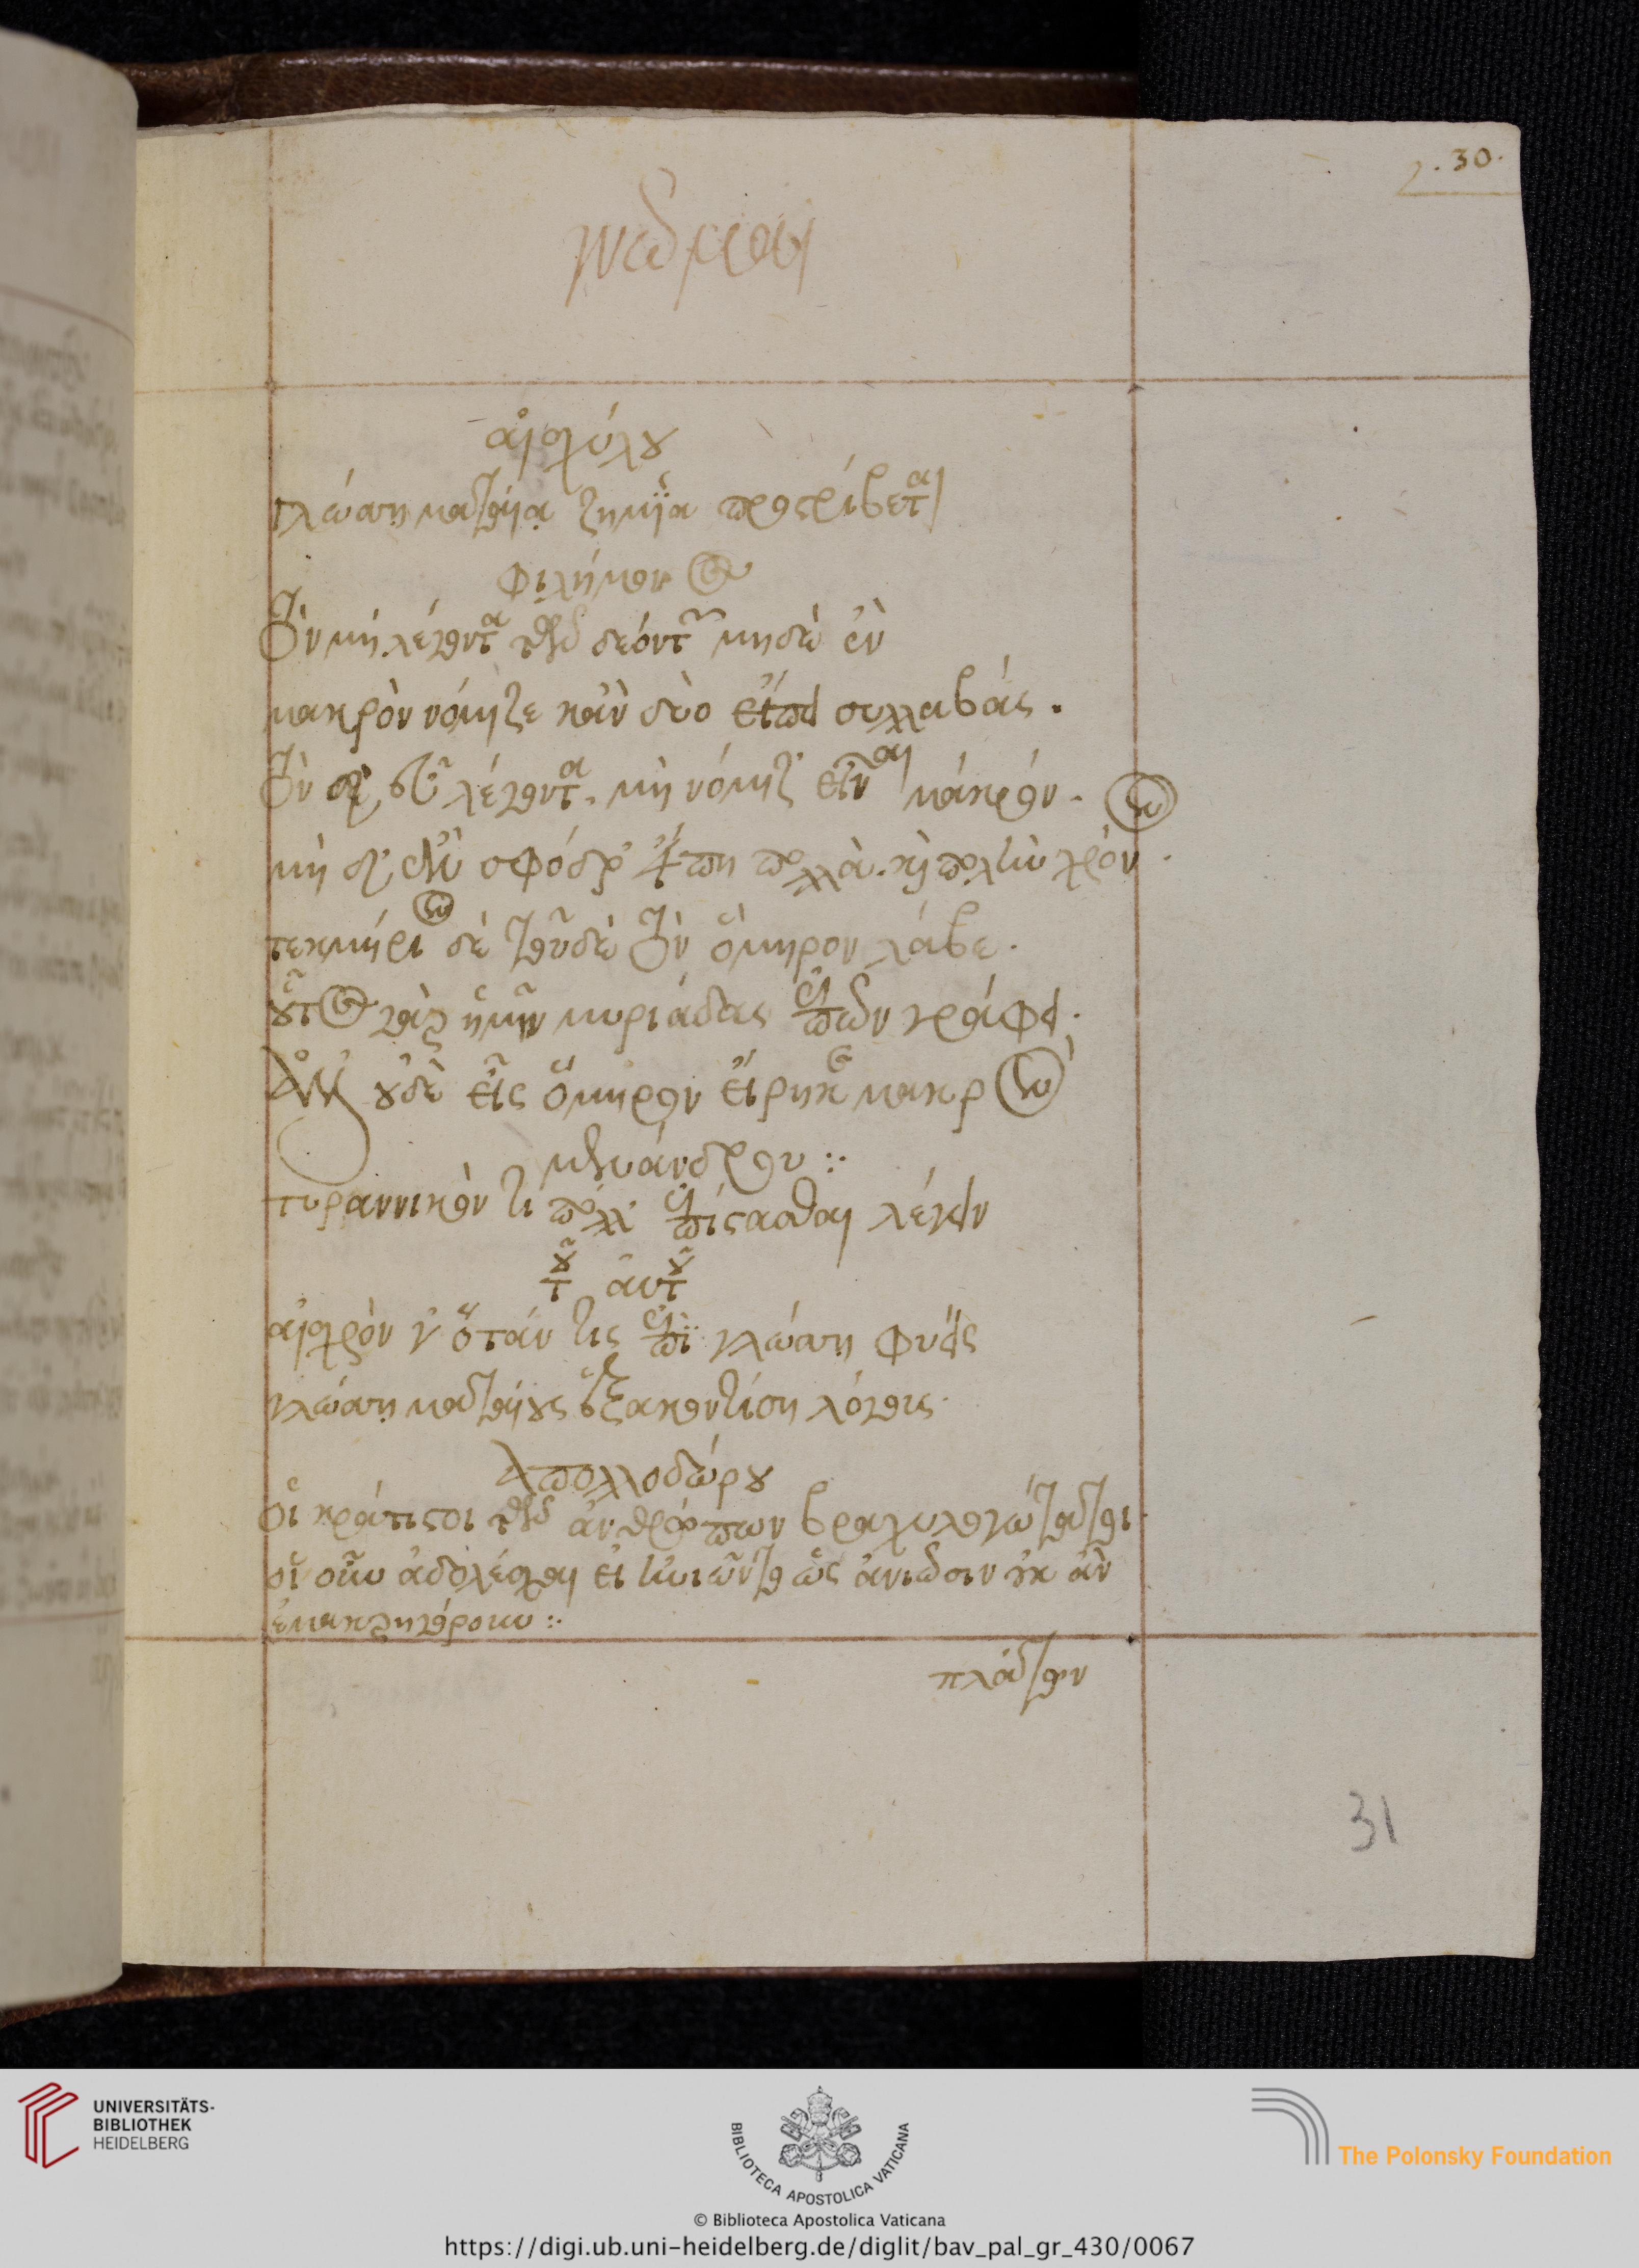 . 30.
γνῶμαι
αἰσχύλου
γλώσσῃ ματαίᾳ ζημία προστρίβεται
Φιλήμονος
Τὸν μὴ λέγοντα τῶν δεόντων μηδὲ ἓν
μακρὸν νόμιζε κἂν δύο εἴπῃ συλλαβάς.
Τὸν δ' εὖ λέγοντα. μὴ νόμιζ' εἶναι μακρόν.
μηδ' ἂν σφόδρ' εἴπῃ πολλὰ. καὶ πολὺν χρόνον.
τεκμήριον δὲ τοῦδὲ τὸν ὅμηρον λάβε.
οὗτος γὰρ ἡμῖν μυριάδας ἐπῶν γράφει.
Ἀλλ' οὐδὲ εἷς ὅμηρον εἴρηκε μακρόν
μενάνδρου :·
τυραννικόν τι πόλλ' ἐπίστασθαι λέγειν
τοῦ αὐτοῦ
αἰσχρόν γ' ὅτάν τις ἐπὶ γλώσσῃ φυεὶς
γλώσσῃ ματαίους ἐξακοντίσῃ λόγους.
Ἀπολλοδώρου
οἱ κράτιστοι τῶν ἀνθρώπων βραχυλογώτατοι.
πλάτων
31
UNIVERSITÄTS-
BIBLIOTHEK
HEIDELBERG
BIBLIOTECA APOSTOLICA VATICANA
The Polonsky Foundation
© Biblioteca Apostolica Vaticana
https://digi.ub.uni-heidelberg.de/diglit/bav_pal_gr_430/0067